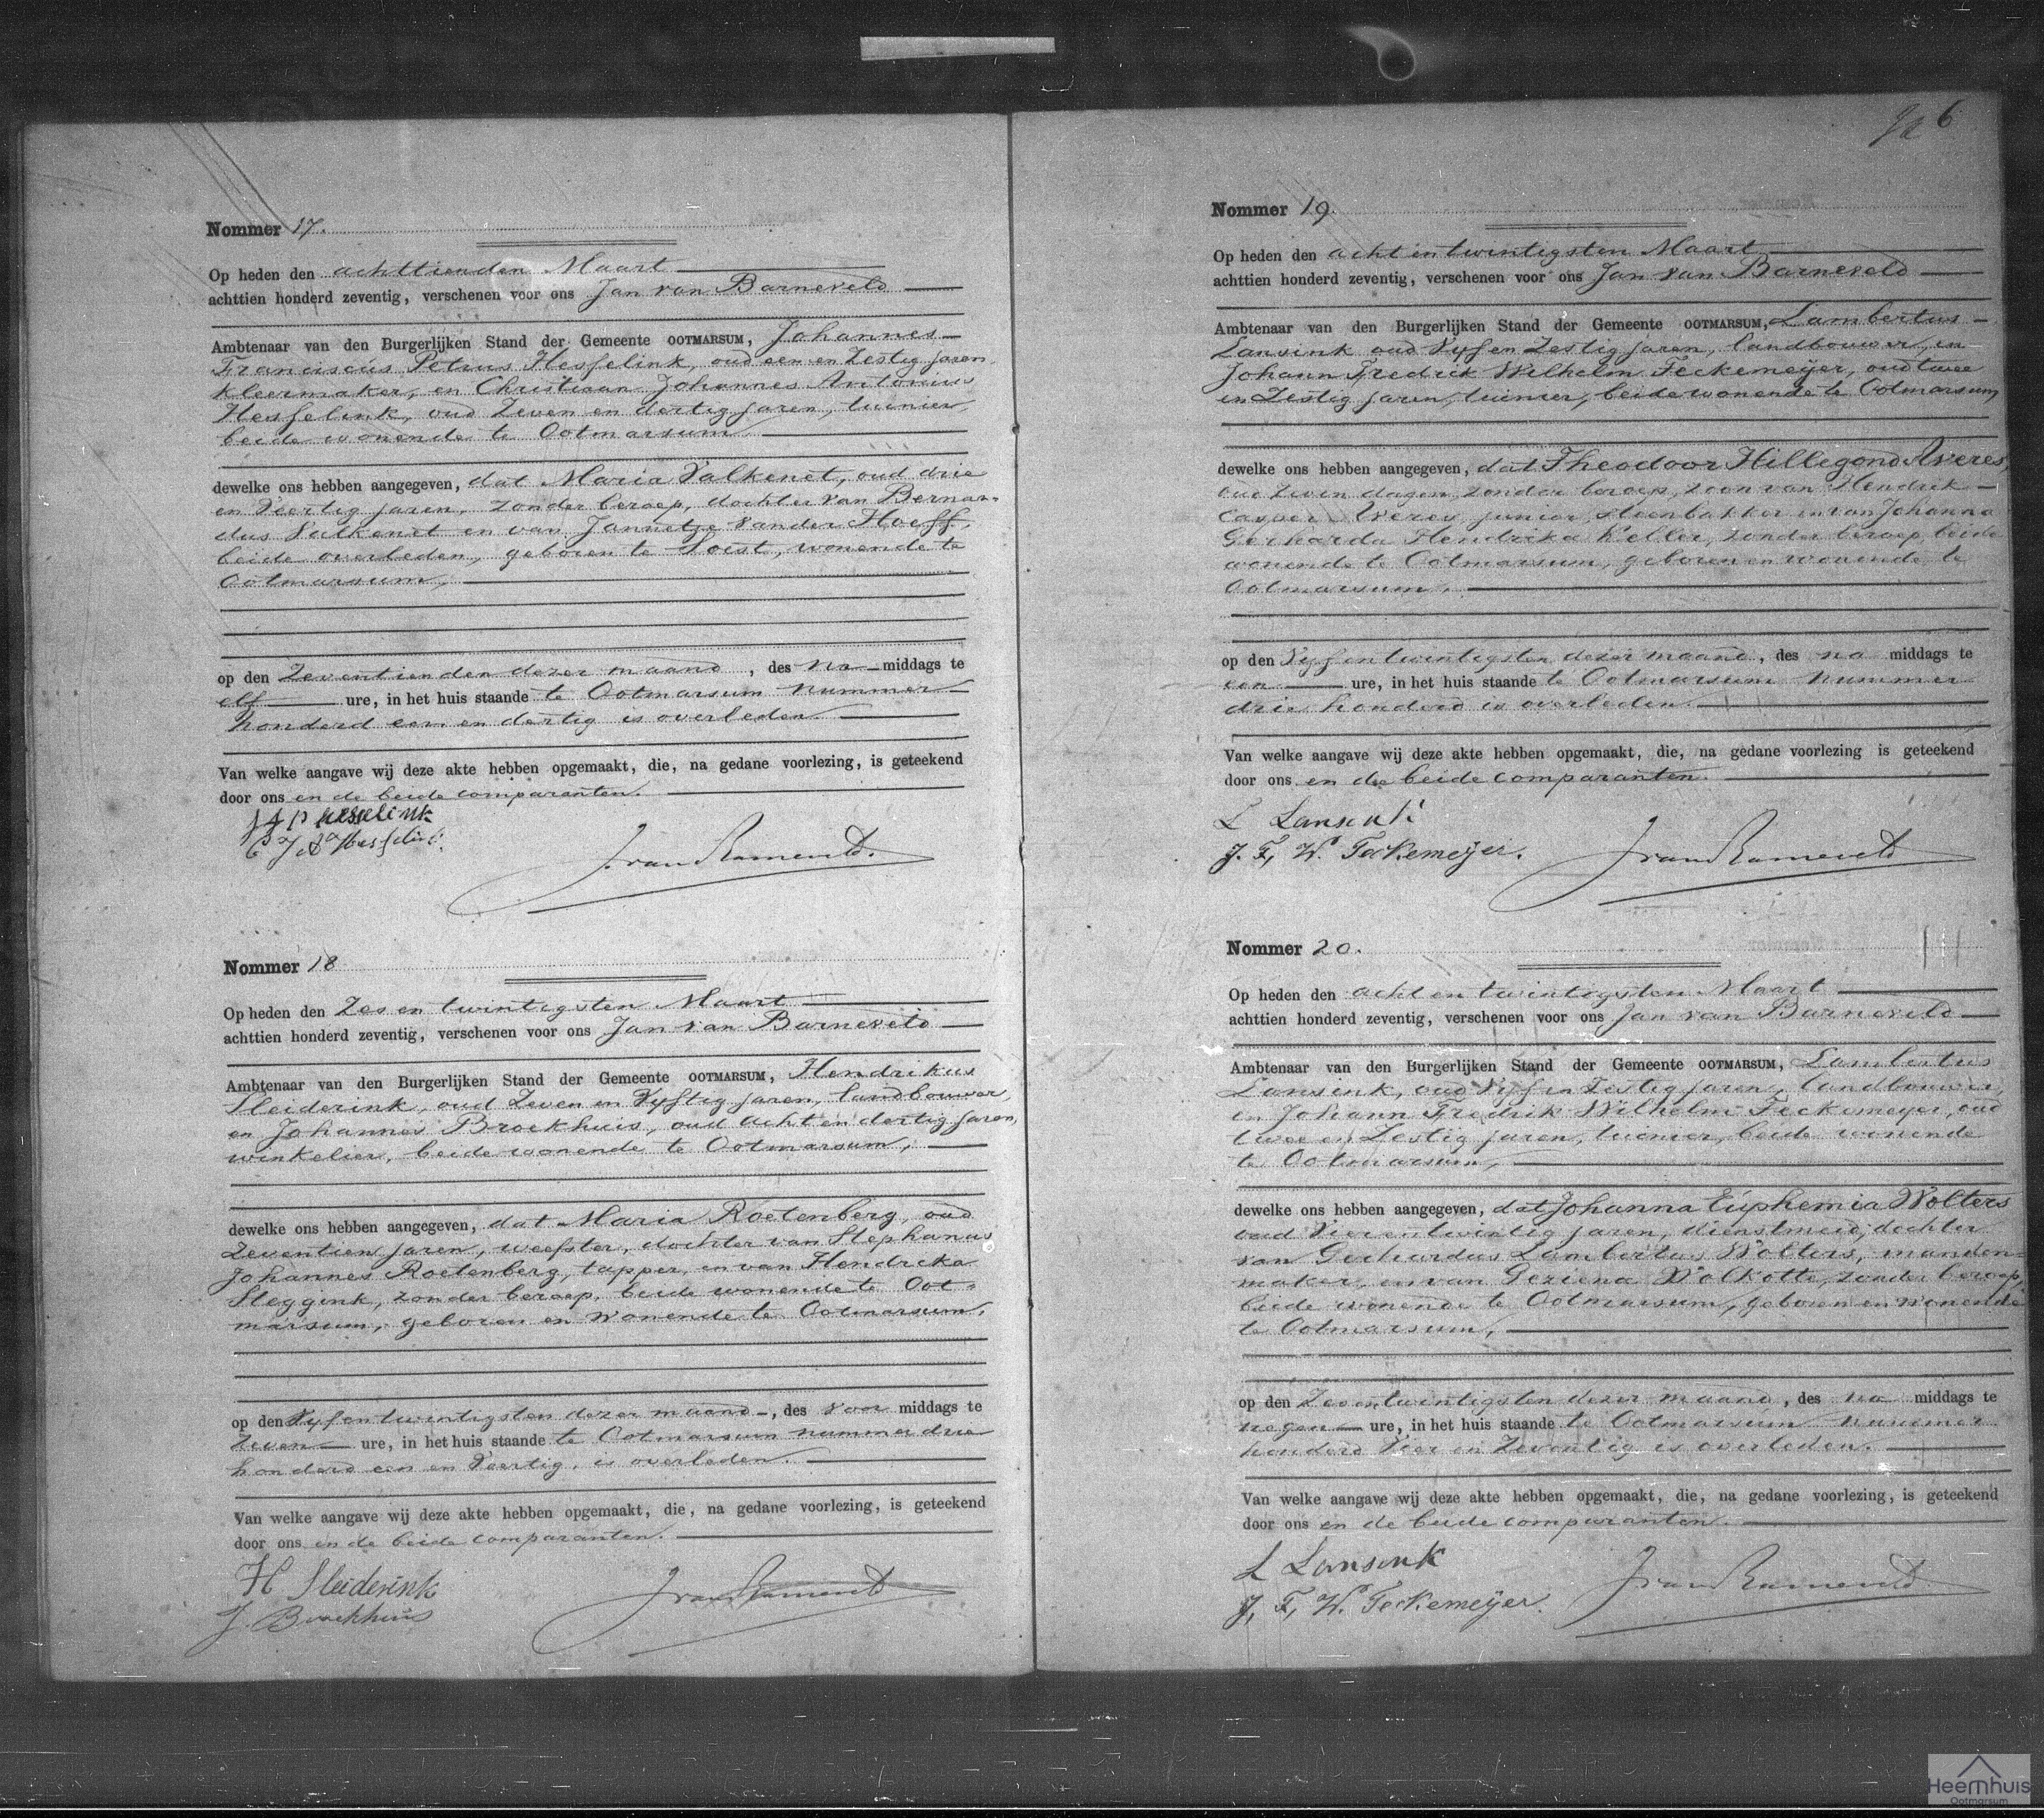 Nommer 17.
Op heden den achttienden Maart
achttien honderd zeventig, verschenen voor ons Jan van Barneveld
Ambtenaar van den Burgerlijken Stand der Gemeente OOTMARSUM, Johannes
Franciscus Petrus Hesselink, oud een en Zestig jaren
kleermaker, en Christiaan Johannes Antonius
Hesselink, oud Zeven en dertig jaren, tuinier,
beide wonende te Ootmarsum
dewelke ons hebben aangegeven, dat Maria Valkenet, oud drie
en Veertig jaren, zonder beroep, dochter van Bernar-
dus Valkenet en van Jannetze van der Hoeff,
beide overleden, geboren te Soest, wonende te
Ootmarsum,
op den Zeventienden dezer maand, des na middags te
elf ure, in het huis staande te Ootmarsum nummer
honderd een en dertig is overleden.
Van welke aangave wij deze akte hebben opgemaakt, die, na gedane voorlezing, is geteekend
door ons en de beide comparanten.
Hesselink
C J A Hesselink
J van Barneveld.
Nommer 18
Op heden den Zes en twintigsten Maart
achttien honderd zeventig, verschenen voor ons Jan van Barneveld
Ambtenaar van den Burgerlijken Stand der Gemeente OOTMARSUM, Hendrikus
Sleiderink, oud Zeven en Vyftig jaren, landbouwer,
en Johannes Broekhuis, oud acht en dertig jaren,
winkelier, beide wonende te Ootmarsum,
dewelke ons hebben aangegeven, dat Maria Roetenberg, oud
Zeventien jaren, weefster, dochter van Stephanus
Johannes Roetenberg, tapper, en van Hendrika
Steggink, zonder beroep, beide wonende te Oot-
marsum, geboren en wonende te Ootmarsum,
op den Vyfentwintigsten dezer maand, des voor middags te
Zeven ure, in het huis staande te Ootmarsum nummer drie
honderd een en Veertig, is overleden.
Van welke aangave wij deze akte hebben opgemaakt, die, na gedane voorlezing, is geteekend
door ons en de beide comparanten.
H Sleiderink
J. Broekhuis
J van Barneveld
6
Nommer 19.
Op heden den acht en twintigsten Maart
achttien honderd zeventig, verschenen voor ons Jan van Barneveld
Ambtenaar van den Burgerlijken Stand der Gemeente OOTMARSUM, Lambertus
Lansink oud Vyf en Zestig jaren, landbouwer, en
Johann Fredrik Wilhelm Feckemeyer, oud twee
en Zestig jaren, tuinier, beide wonende te Ootmarsum
dewelke ons hebben aangegeven, dat Theodoor Hillegond Averes,
oud Zeven dagen, zonder beroep, zoon van Hendrik
Casper Averes junior, steenbakker en van Johanna
Gerharda Hendrika Keller, zonder beroep, beide
wonende te Ootmarsum, geboren en wonende te
Ootmarsum,
op den Vyfentwintigsten dezer maand, des na middags te
een ure, in het huis staande te Ootmarsum nummer
drie honderd is overleden.
Van welke aangave wij deze akte hebben opgemaakt, die, na gedane voorlezing is geteekend
door ons en de beide comparanten.
L Lansink
J. F. W. Feckemeijer.
J van Barneveld
Nommer 20.
Op heden den acht en twintigsten Maart
achttien honderd zeventig, verschenen voor ons Jan van Barneveld
Ambtenaar van den Burgerlijken Stand der Gemeente OOTMARSUM, Lambertus
Lansink, oud Vyf en Zestig jaren, landbouwer,
en Johann Fredrik Wilhelm Feckemeyer, oud
twee en Zestig jaren, tuinier, beide wonende
te Ootmarsum,
dewelke ons hebben aangegeven, dat Johanna Euphemia Wolters
oud Vier en twintig jaren, dienstmeid, dochter
van Gerhardus Lambertus Wolters, manden-
maker, en van Geziena Wolkotte, zonder beroep,
beide wonende te Ootmarsum, geboren en wonende
te Ootmarsum,
op den Zeventwintigsten dezer maand, des na middags te
negen ure, in het huis staande te Ootmarsum nummer
honderd Vier en Zeventig is overleden.
Van welke aangave wij deze akte hebben opgemaakt, die, na gedane voorlezing, is geteekend
door ons en de beide comparanten.
L Lansink
J. F. W. Feckemeijer.
J van Barneveld
Heemhuis
Ootmarsum